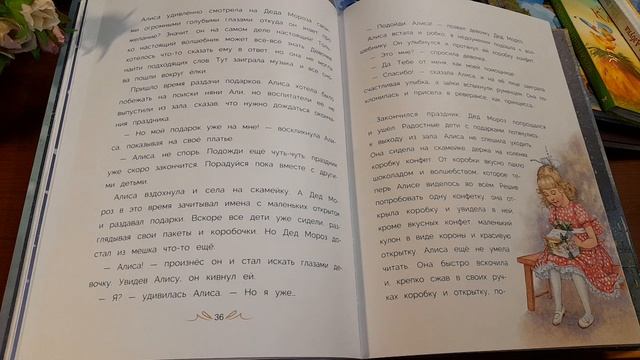 Алиса удивлённо смотрела на Деда Мороза свои-
ми огромными голубыми глазами: откуда он знает про
желание? Значит он на самом деле настоящий! Толь-
ко настоящий волшебник может всё-всё знать. Девочке
хотелось что-то сказать ему в ответ, но она не могла
найти подходящих слов. Тут заиграла музыка, и все сно-
ва пошли вокруг ёлки.
Пришло время раздачи подарков. Алиса хотела было
побежать на поиски няни Али, но воспитатели её не
выпустили из зала, сказав, что нужно дождаться оконча-
ния праздника.
— Но мой подарок уже на мне! — воскликнула Али-
са, показывая на своё платье.
— Алиса, не спорь. Подожди ещё чуть-чуть, праздник
уже скоро закончится. Порадуйся пока вместе с други-
ми детьми.
Алиса вздохнула и села на скамейку. А Дед Мо-
роз в это время зачитывал имена с маленьких открыток
и раздавал подарки. Вскоре все дети уже сидели, раз-
глядывая свои пакеты и коробочки. Но Дед Мороз до-
стал из мешка что-то ещё.
— Алиса! — произнёс он и стал искать глазами де-
вочку. Увидев Алису, он кивнул ей.
— Я? — удивилась Алиса. — Но я уже...
36
— Подойди, Алиса! — позвал девочку Дед Мороз.
Алиса встала и робко, в недоумении, подошла к вол-
шебнику. Он улыбнулся и протянул ей коробку конфет.
— Это мне? — спросила девочка.
— Да. Тебе от меня, как моей помощнице.
— Спасибо! — сказала Алиса, и на её лице заиграла
счастливая улыбка, а щёки вспыхнули румянцем. Она по-
клонилась и присела в реверансе, как принцесса.
Закончился праздник. Дед Мороз попрощался
и ушёл. Радостные дети с подарками потянулись
к выходу из зала. Алиса не спешила уходить.
Она сидела на скамейке, держа на коленях
коробку конфет. От коробки вкусно пахло
шоколадом и волшебством, которое те-
перь Алисе виделось во всём. Решив
попробовать одну конфету, она от-
крыла коробку и увидела в ней,
кроме вкусных конфет, маленький
купон в виде короны и красивую
открытку. Алиса ещё не умела
читать. Она быстро вскочила
и, крепко сжав в своих руч-
ках коробку и открытку, по-